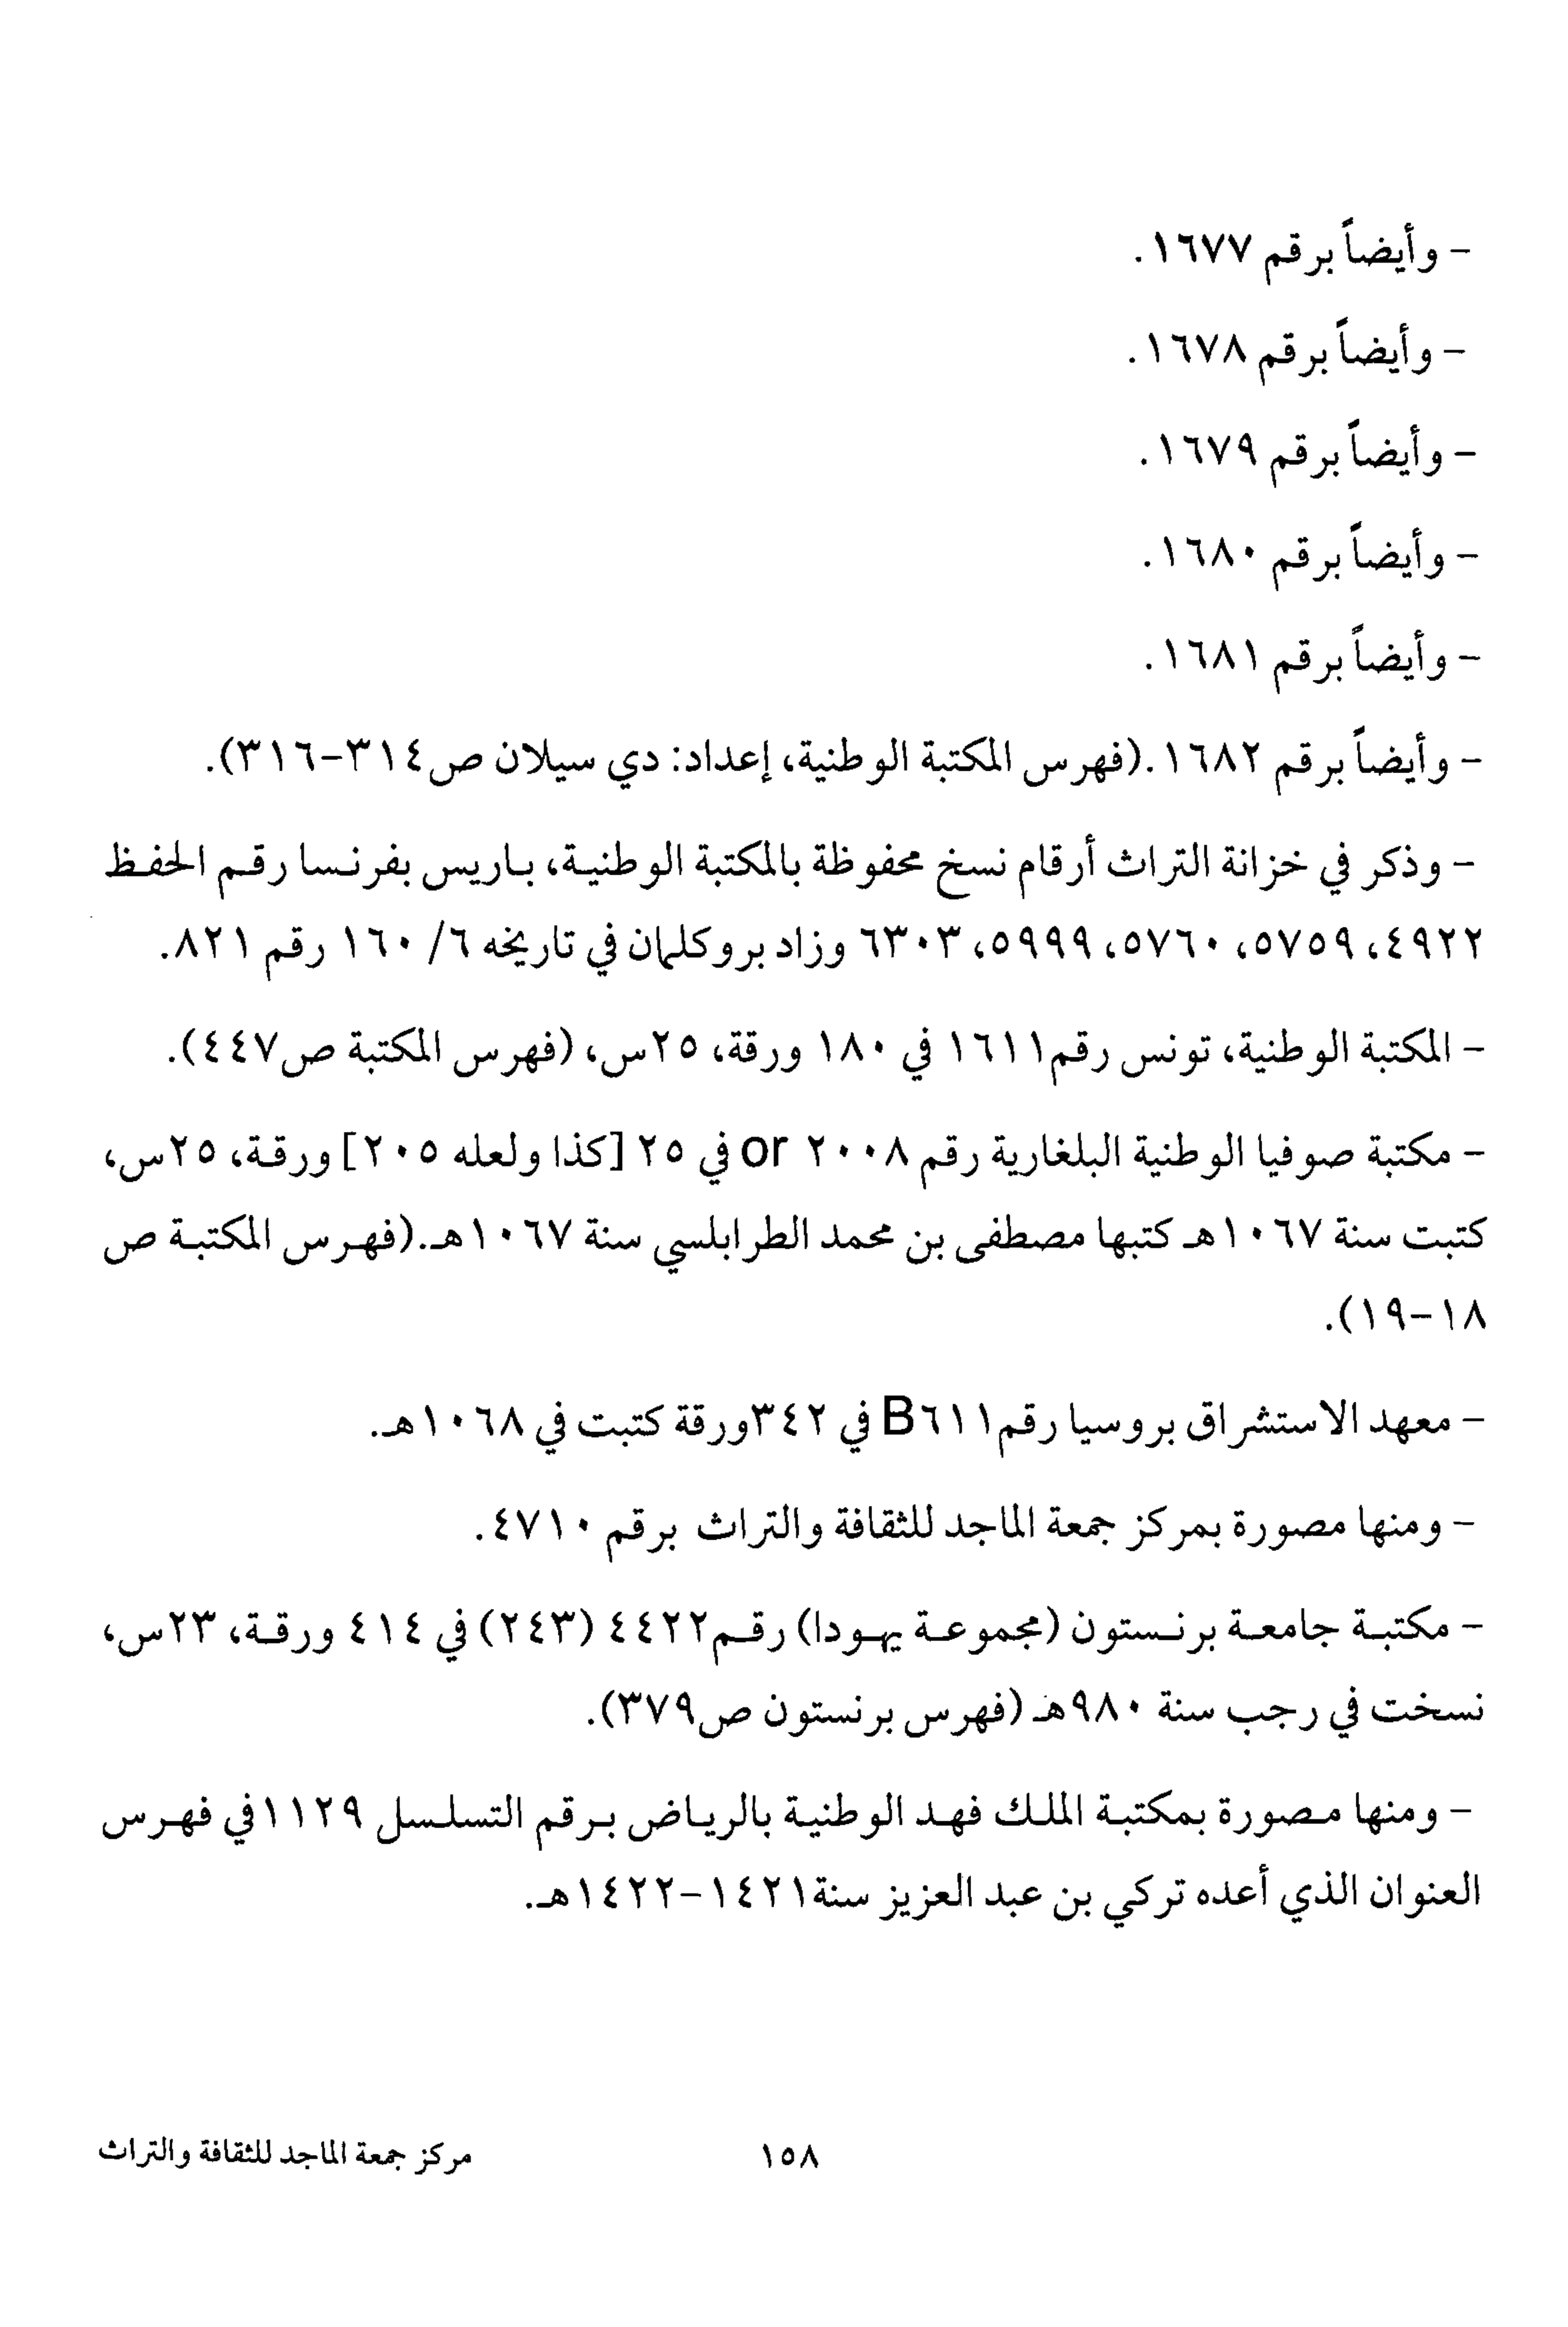 - وأيضاً برقم ١٦٧٧.
- وأيضاً برقم ١٦٧٨.
- وأيضاً برقم ١٦٧٩.
- وأيضاً برقم ١٦٨٠.
- وأيضاً برقم ١٦٨١.
- وأيضاً برقم ١٦٨٢.(فهرس المكتبة الوطنية، إعداد: دي سيلان ص٣١٤-٣١٦).
- وذكر في خزانة التراث أرقام نسخ محفوظة بالمكتبة الوطنية، باريس بفرنسا رقم الحفظ
٤٩٢٢، ٥٧٥٩، ٥٧٦٠، ٥٩٩٩، ٦٣٠٣ وزاد بروكلمان في تاريخه ٦/ ١٦٠ رقم ٨٢١.
- المكتبة الوطنية، تونس رقم١٦١١ في ١٨٠ ورقة، ٢٥س، (فهرس المكتبة ص٤٤٧).
- مكتبة صوفيا الوطنية البلغارية رقم ٢٠٠٨ or في ٢٥ [كذا ولعله ٢٠٥] ورقة، ٢٥س،
كتبت سنة ١٠٦٧هـ كتبها مصطفى بن محمد الطرابلسي سنة ١٠٦٧هـ.(فهرس المكتبة ص
١٨-١٩).
- معهد الاستشراق بروسيا رقم٦١١B في ٣٤٢ورقة كتبت في ١٠٦٨هـ.
- ومنها مصورة بمركز جمعة الماجد للثقافة والتراث برقم ٤٧١٠.
- مكتبة جامعة برنستون (مجموعة يهودا) رقم٤٤٢٢ (٢٤٣) في ٤١٤ ورقة، ٢٣س،
نسخت في رجب سنة ٩٨٠هـ (فهرس برنستون ص٣٧٩).
- ومنها مصورة بمكتبة الملك فهد الوطنية بالرياض برقم التسلسل ١١٢٩في فهرس
العنوان الذي أعده تركي بن عبد العزيز سنة١٤٢١-١٤٢٢هـ.
١٥٨
مركز جمعة الماجد للثقافة والتراث